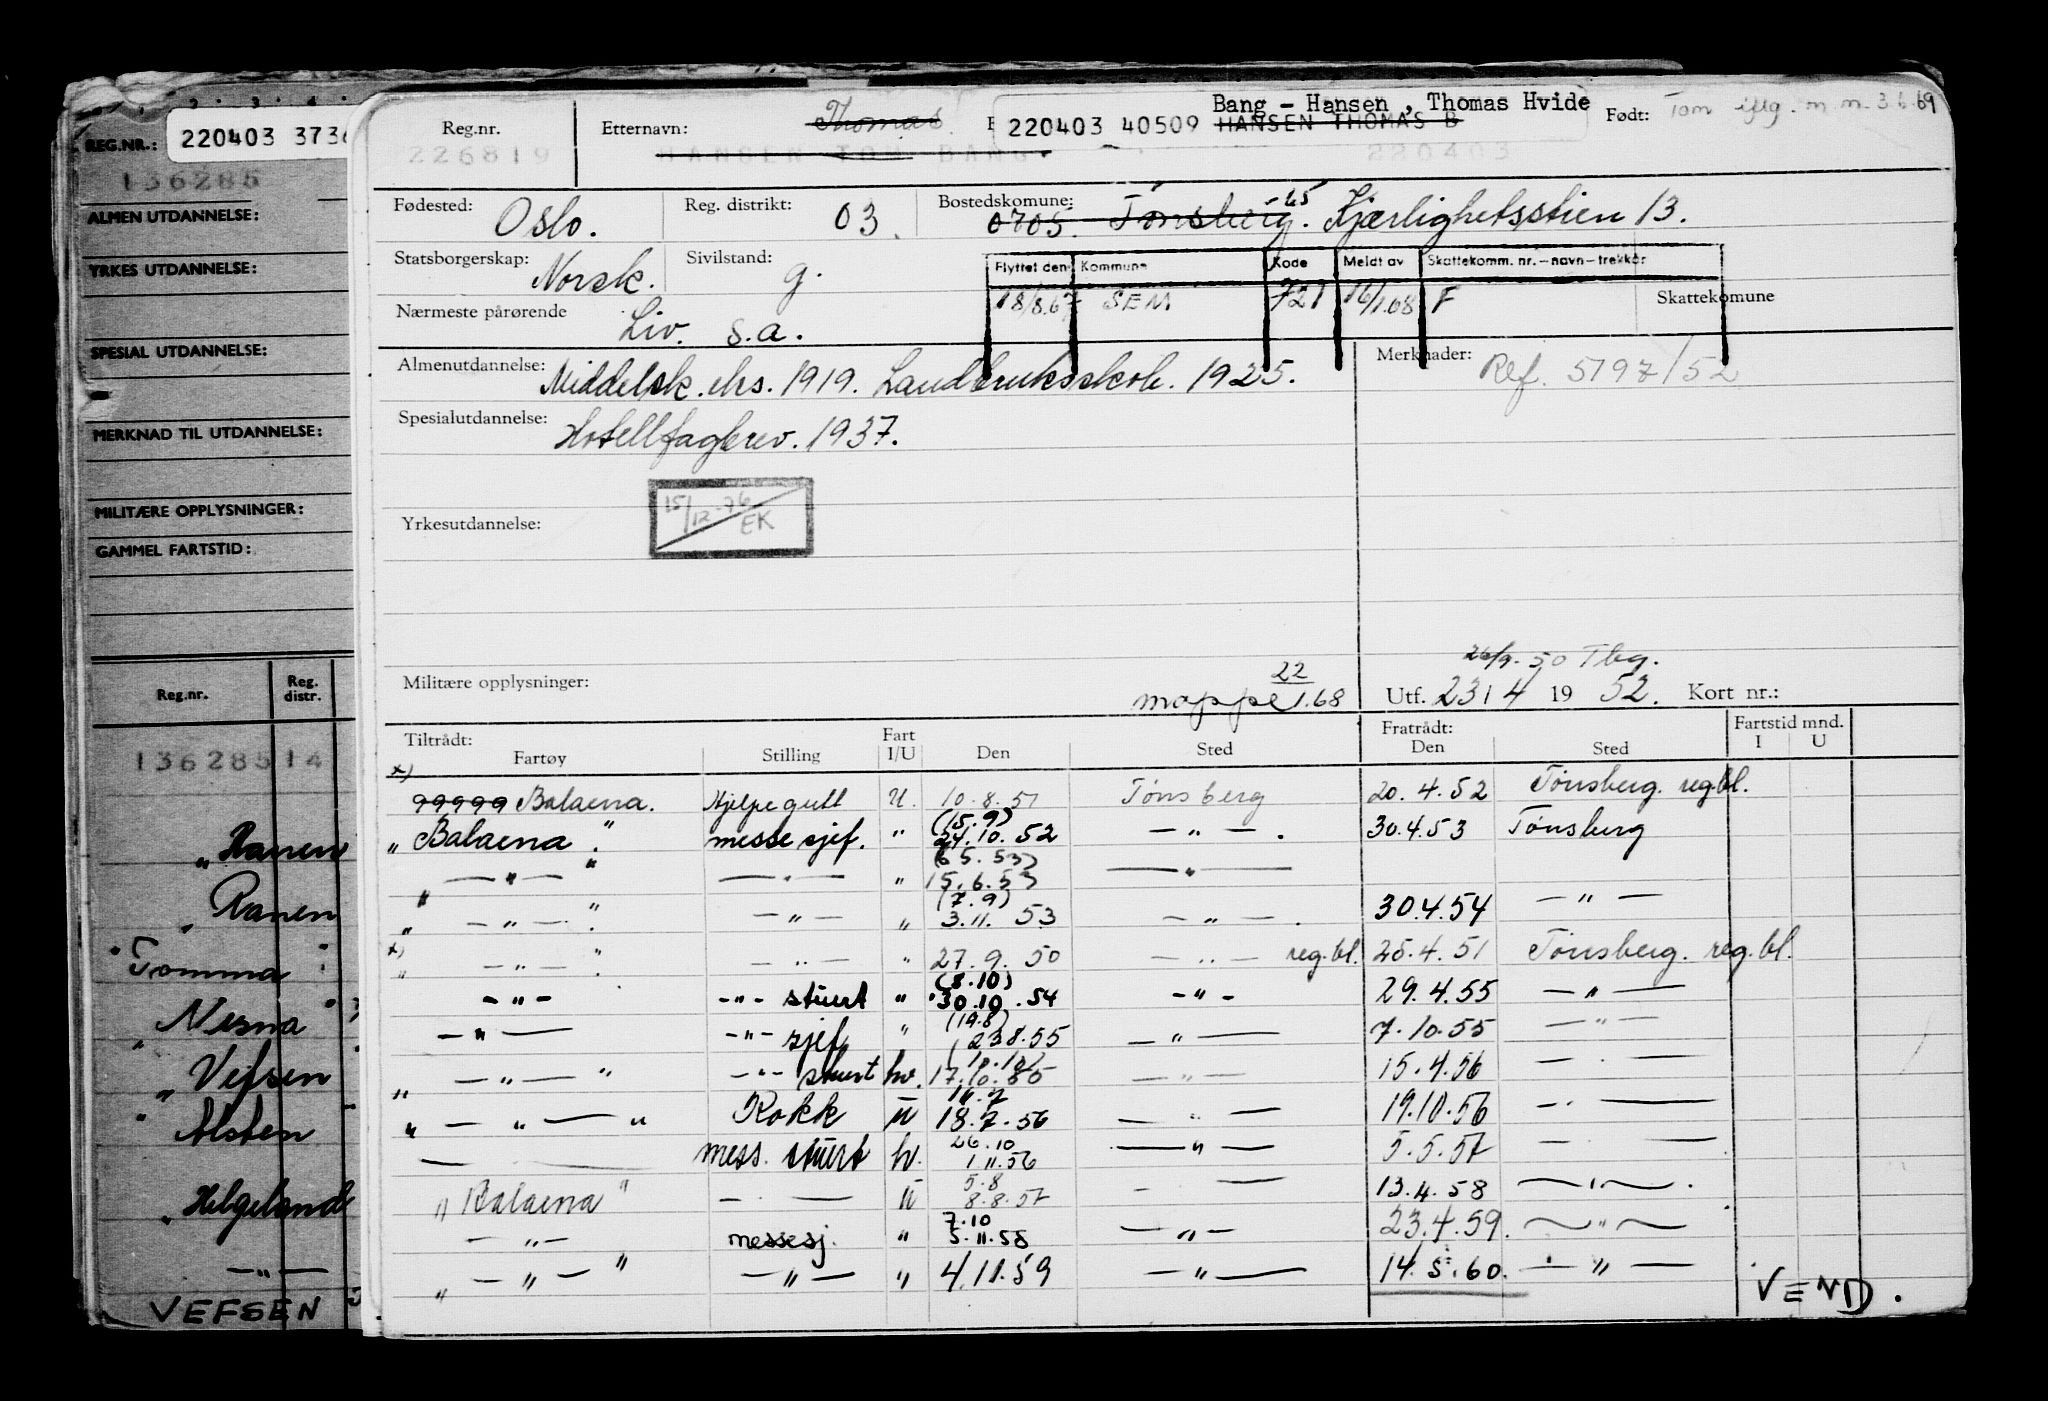 REG.NR.: 220403 373
136285
ALMEN UTDANNELSE:
YRKES UTDANNELSE:
SPESIAL UTDANNELSE:
MERKNAD TIL UTDANNELSE:
MILITÆRE OPPLYSNINGER:
GAMMEL FARTSTID:
Reg.nr. Reg. distr.
136285 14
" Ranen
" Ranen
" Tomma "
" Nesna "
" Vefsen "
" Alsten
" Helgeland
— " —
VEFSEN
Bang - Hansen, Thomas Hvide
Reg.nr. Etternavn: Thomas 220403 40509 HANSEN THOMAS B Født: Tom iflg. n.n. 3.6.69
226819 HANSEN TOM BANG 220403
Fødested: Oslo. Reg. distrikt: 03. Bostedskomune: 0705. Tønsberg. Kjærlighetsstien 13.
Statsborgerskap: Norsk. Sivilstand: g.
Flyttet den Kommune Kode Meldt av Skattekomm. nr.-navn-trekkår
18/8.67 SEM 721 16/1.68 F Skattekomune
Nærmeste pårørende Liv. s.a.
Almenutdannelse: Middelsk. eks. 1919. Landbruksskole. 1925. Merknader: Ref. 5197/52
Spesialutdannelse: Hotellfagbrev. 1937.
15/12-76 EK
Yrkesutdannelse:
26/9-50 Tbg.
Militære opplysninger: mappe 22/1.68 Utf. 23/4 1952. Kort nr.:
Tiltrådt: Fart Fratrådt: Fartstid mnd.
Fartøy Stilling I/U Den Sted Den Sted I U
x) 99999 Balaena. Hjelpegutt U. 10.8.51 Tønsberg 20.4.52 Tønsberg. reg.bl.
(15.9)
" Balaena." messesjef. " 24.10.52 — " —. 30.4.53 Tønsberg
(6 5.53)
" — " — " — " — " 15.6.53 — " —
(7.9)
" — " — ." — " — " 3.11.53 — " —. 30.4.54 — " —
x) " — " — ." — " — " 27.9.50 — " — reg.bl. 25.4.51 Tønsberg. reg.bl.
(8.10)
— " — — " — stuert " 30.10.54 — " — 29.4.55 — " —
(19.8)
— " — — " — sjef " 23.8.55 — " — 7.10.55 — " —
(10.10)
" — " — " — " — stuert hv. 17.10.55 — " — 15.4.56 — " —
16.7
" — " — " Kokk U 18.7.56 — " — 19.10.56 — " —
26.10
— mess. stuert hv. 1 11.56 — " — 5.5.57 — " —
5.8
" Balaena " — " — U 8.8.57 — " — 13.4.58 — " —.
7.10
— " — messesj. " 5.11.58 — " — 23.4.59. — " —
" — " — " — " — " 4.11.59 — " — 14.5.60. — " —
VEND.